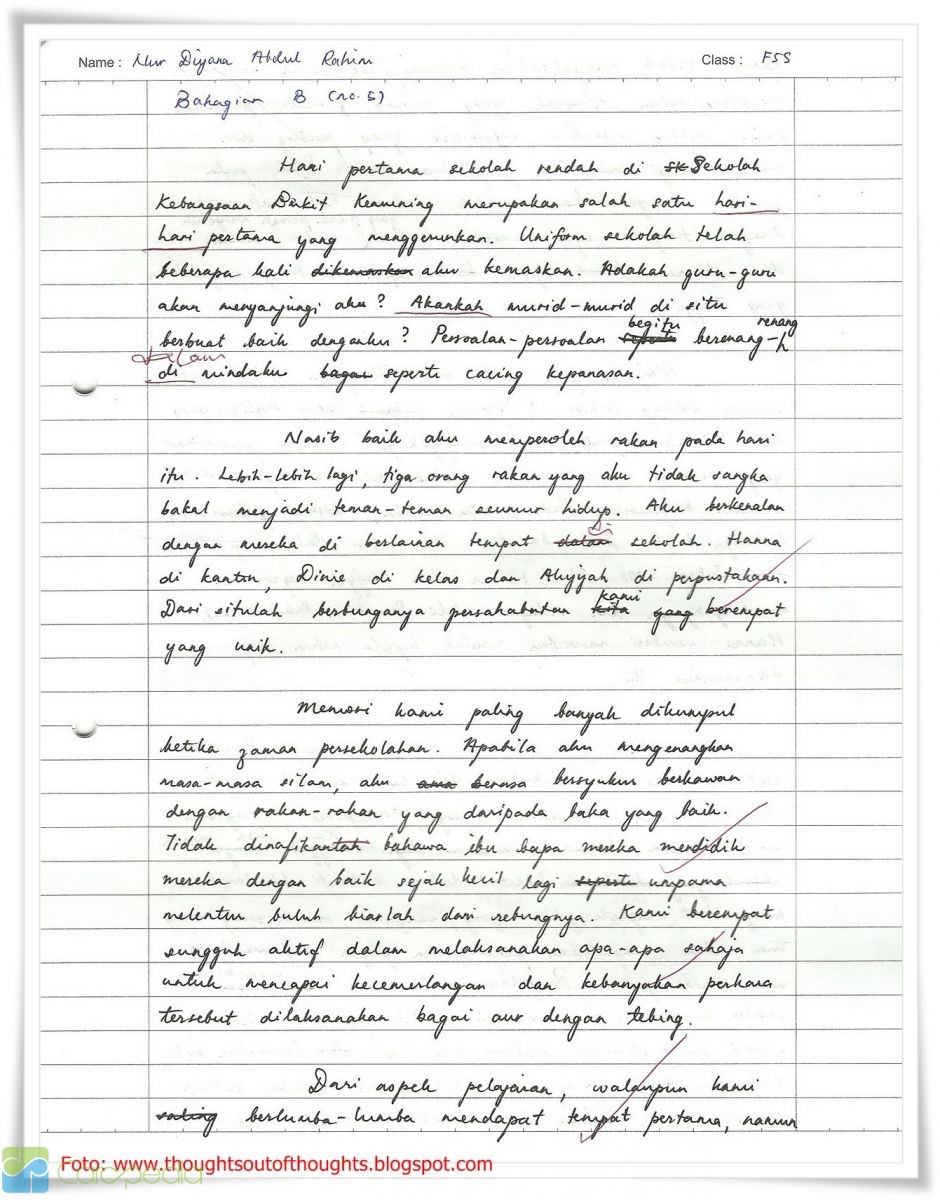 Name : Nur Diyana Abdul Rahim Class : F5S
Bahagian B (no. 5)
Hari pertama sekolah rendah di sk Sekolah
Kebangsaan Bukit Kemuning merupakan salah satu hari-
hari pertama yang menggerunkan. Uniform sekolah telah
beberapa kali dikemaskan aku kemaskan. Adakah guru-guru
akan menyanjungi aku? Akankah murid-murid di situ
berbuat baik denganku? Persoalan-persoalan begitu berenang-renang
dalam
di mindaku bagai seperti cacing kepanasan.
Nasib baik aku memperoleh rakan pada hari
itu. Lebih-lebih lagi, tiga orang rakan yang aku tidak sangka
bakal menjadi teman-teman seumur hidup. Aku berkenalan
di
dengan mereka di berlainan tempat dalam sekolah. Hanna
di kantin, Dinie di kelas dan Aliyyah di perpustakaan.
kami
Dari situlah berbunganya persahabatan kita yang berempat
yang unik.
Memori kami paling banyak dikumpul
ketika zaman persekolahan. Apabila aku mengenangkan
masa-masa silam, aku berasa bersyukur berkawan
dengan rakan-rakan yang daripada baka yang baik.
Tidak dinafikantah bahawa ibu bapa mereka mendidik
mereka dengan baik sejak kecil lagi seperti umpama
melentur buluh biarlah dari rebungnya. Kami berempat
sungguh aktif dalam melaksanakan apa-apa sahaja
untuk mencapai kecemerlangan dan kebanyakan perkara
tersebut dilaksanakan bagai aur dengan tebing.
Dari aspek pelajaran, walaupun kami
saling berlumba-lumba mendapat tempat pertama, namun
Foto: www.thoughtsoutofthoughts.blogspot.com